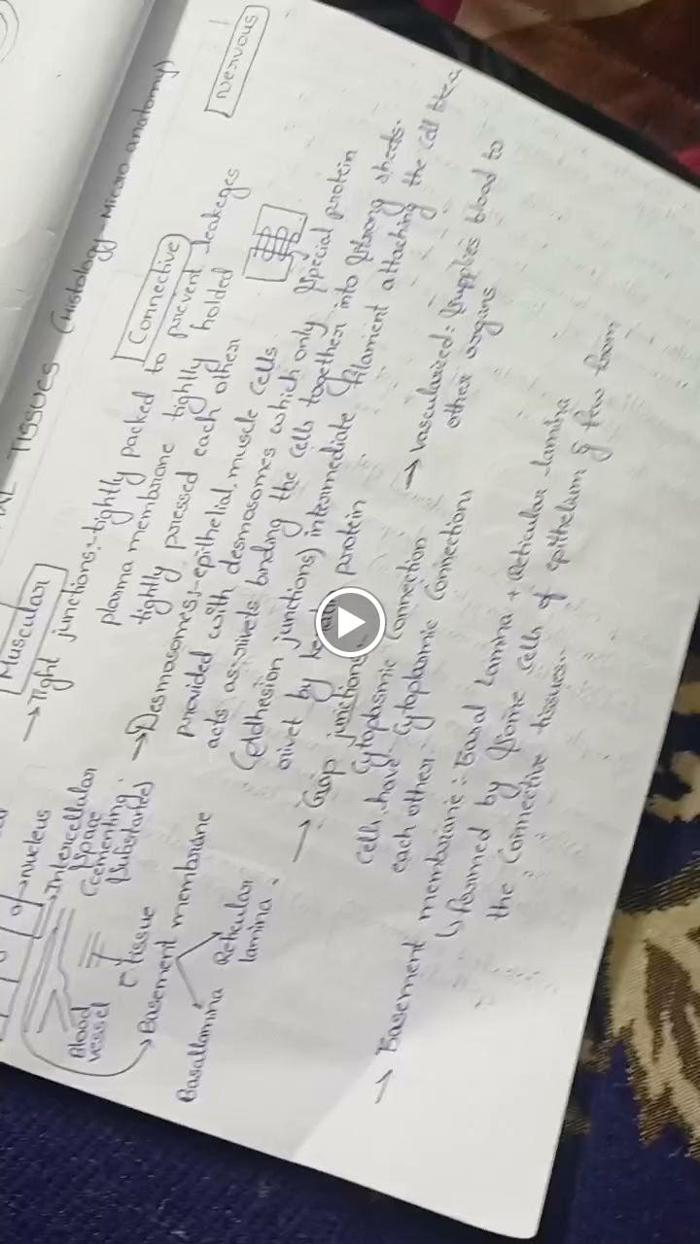 TISSUES (Histology - Micro anatomy)
Muscular
Connective
Nervous
→ Tight junctions:- tightly packed to prevent leakeges
plasma membrane tightly holded
tightly pressed each other
→ Desmosomes:- epithelial, muscle cells
provided with desmosomes which only special protein
acts as rivets binding the cells together into strong sheets.
(Addhesion junctions) intermediate filament attaching the cell
rivet by protein
→ Gap junctions:-
Cytoplasmic connection
cells have Cytoplasmic connections
each other.
→ vascularized: supplies blood to
other organs
→ Basement membrane: Basal Lamina + Reticular lamina
↳ formed by some cells of epithelium & few from
the connective tissues.
→ nucleus
→ Intercellular
space
(cementing
substances)
Blood
vessel
tissue
→ Basement membrane
Basallamina
Reticular
lamina